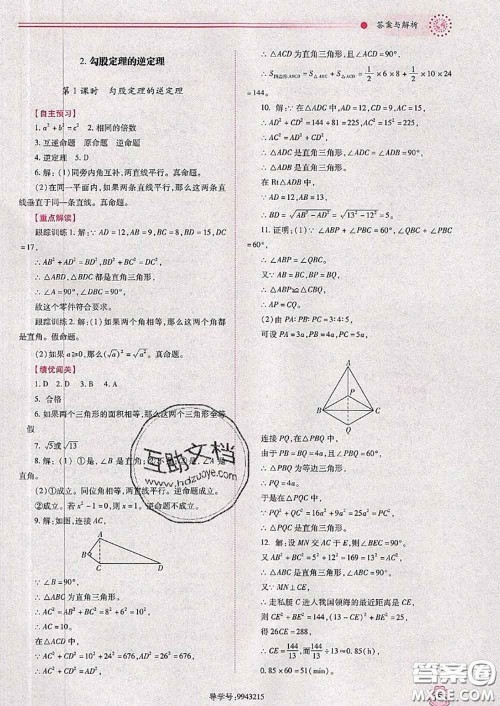 答案与解析
2. 勾股定理的逆定理
第1课时 勾股定理的逆定理
【自主预习】
1. a²+b²=c² 2. 相同的倍数
3. 互逆命题 原命题 逆命题
4. 逆定理 5. D
6. 解：(1)同旁内角互补，两直线平行。真命题。
(2)在同一平面内，如果两条直线平行，那么这两条直
线垂直于同一条直线。真命题。
【重点解读】
跟踪训练1. 解：∵AD=12，AB=9，BC=8，DC
=17，
∴AB²+AD²=BD²，BD²+BC²=DC²，
∴△ABD，△BDC都是直角三角形，
∴∠A=90°，∠DBC=90°，
故这个零件符合要求。
跟踪训练2. 解：(1)如果两个角相等，那么这两个角是
直角。假命题。
(2)如果a≥0，那么(√a)²=√a²。真命题。
【绩优闯关】
1. D 2. D 3. C 4. D
5. 合格
6. 如果两个三角形的面积相等，那么这两个三角形全等
假
7. √5或√13
8. 解：(1)
(2)①成立，同位角相等，两直线平行。逆命题成立。
9. 解：如图，连接AC，
A
B
C
D
∵∠B=90°，
∴△ABC为直角三角形，
∴AC²=AB²+BC²=8²+6²=10²，
∵AC>0，∴AC=10，
在△ADC中，
∵AC²+CD²=10²+24²=676，AD²=26²=676，
∴AC²+CD²=AD²，
∴△ACD为直角三角形，
∴S四边形ABCD=S△ABC+S△ACD=½×6×8+½×10×24
=144。
10. 解：∵在△ADC中，AD=12，CD=9，AC=15，
∴AD²+CD²=144+81=225，AC²=15²=225，
∴AD²+CD²=AC²，
∴△ADC是直角三角形，
∴∠ADC=∠ADB=90°，
在Rt△ADB中，
∵AD=12，AB=13，
∴BD=√(AB²-AD²)=√(13²-12²)=5。
11. 证明：(1)∵∠ABP+∠PBC=∠QBC+∠PBC
=60°，
∴∠ABP=∠QBC。
又AB=BC，BP=BQ，
∴△ABP≌△CBQ，
∴AP=CQ。
(2)由PA∶PB∶PC=3∶4∶5，
可设PA=3a，PB=4a，PC=5a。
A
B
P
C
Q
连接PQ，在△PBQ中，
由于PB=BQ=4a，且∠PBQ=60°，
∴△PBQ为正三角形，
∴PQ=4a。
在△PQC中，
∵PQ²+QC²=16a²+9a²=25a²=PC²，
∴△PQC是直角三角形。
12. 解：设MN交AC于E，则∠BEC=90°。
∵AB²+BC²=5²+12²=169=13²=AC²，
∴△ABC是直角三角形，∠ABC=90°。
又∵MN⊥CE，
∴走私艇C进入我国领海的最近距离是CE，
则CE²+BE²=144，(13-CE)²+BE²=25，
得26CE=288，
∴CE=144/13，144/13÷13=144/169≈0.85，
0.85×60=51(时)。
导学号：9943215
互助文档
www.hdzuoye.com
答案圈
MXQE.COM